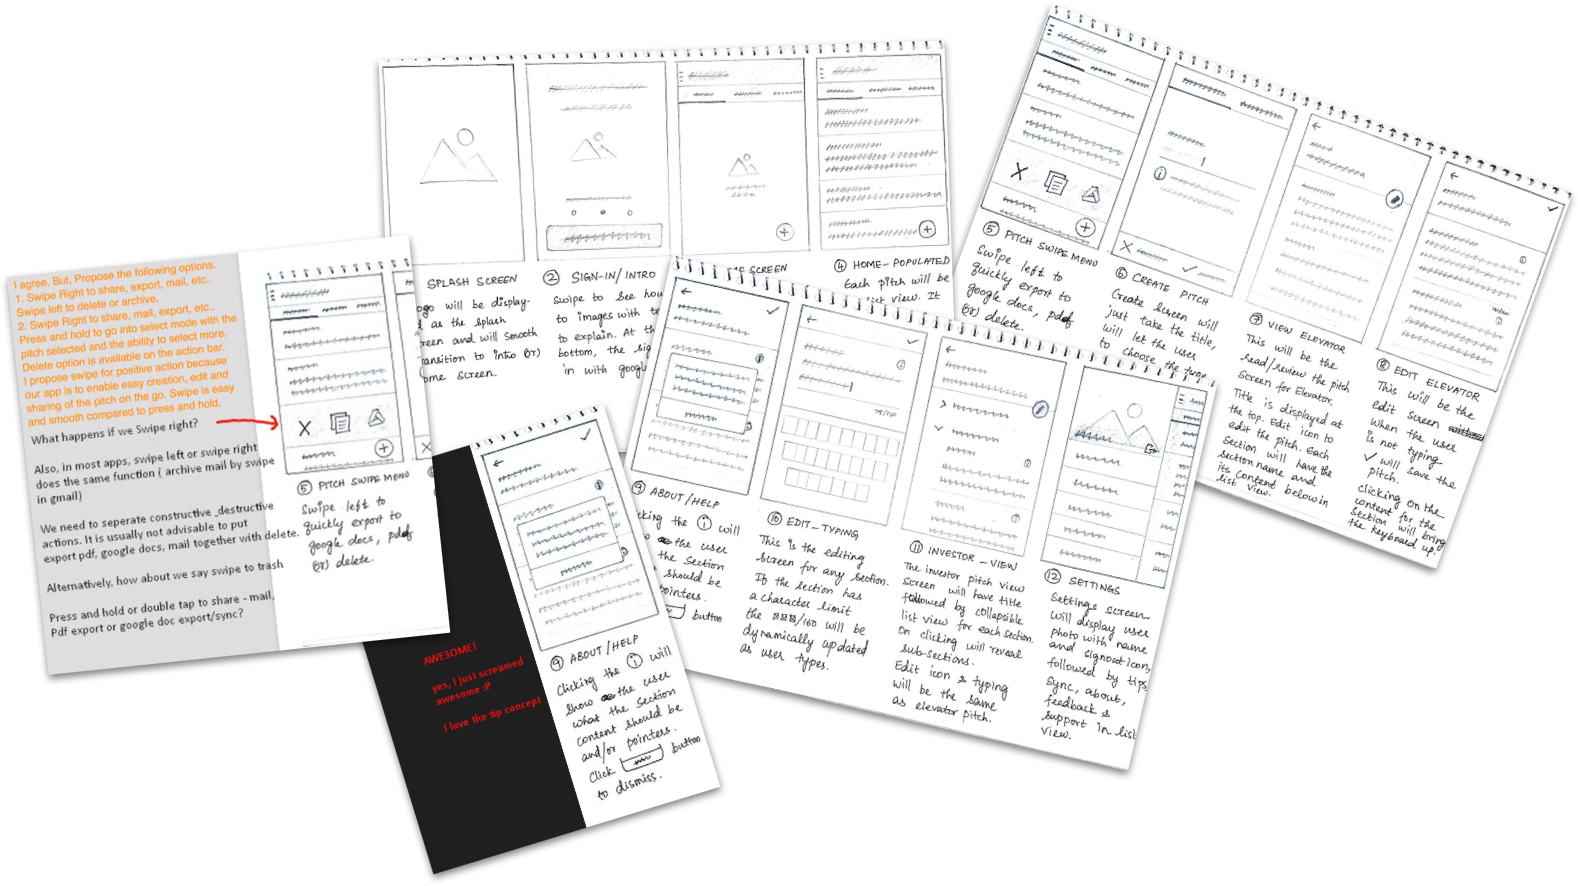 I agree. But, Propose the following options.
1. Swipe Right to share, export, mail, etc..
Swipe left to delete or archive.
2. Swipe Right to share, mail, export, etc..
Press and hold to go into select mode with the
pitch selected and the ability to select more.
Delete option is available on the action bar.
I propose swipe for positive action because
our app is to enable easy creation, edit and
sharing of the pitch on the go. Swipe is easy
and smooth compared to press and hold.
What happens if we Swipe right?
Also, in most apps, swipe left or swipe right
does the same function ( archive mail by swipe
in gmail)
We need to seperate constructive destructive
actions. It is usually not advisable to put
export pdf, google docs, mail together with delete.
Alternatively, how about we say swipe to trash
Press and hold or double tap to share - mail,
Pdf export or google doc export/sync?
5 PITCH SWIPE MENU
Swipe left to
quickly export to
google docs, pdf
(or) delete.
SPLASH SCREEN
ogo will be display-
as the splash
reen and will smooth
ansition to intro (or)
ome screen.
2 SIGN-IN/INTRO
Swipe to see how
to images with te
to explain. At th
bottom, the sig
in with googl
ME SCREEN
4 HOME-POPULATED
Each pitch will be
list view. It
5 PITCH SWIPE MENU
Swipe left to
quickly export to
google docs, pdf
(or) delete.
6 CREATE PITCH
Create Screen will
just take the title,
will let the user
to choose the type
7 VIEW ELEVATOR
This will be the
read/review the pitch
Screen for Elevator.
Title is displayed at
the top. Edit icon to
edit the pitch. Each
Section will have the
section name and
its content below in
list view.
8 EDIT ELEVATOR
This will be the
edit Screen
when the user
is not typing
✓ will save the
pitch.
clicking on the
content for the
Section will bring
the keyboard up.
9 ABOUT/HELP
icking the i will
the user
the section
should be
pointers.
button
10 EDIT-TYPING
This is the editing
Screen for any section.
If the section has
a character limit
the /160 will be
dynamically updated
as user types.
75/160
11 INVESTOR-VIEW
The investor pitch view
screen will have title
followed by collapsible
list view for each section.
On clicking will reveal
sub-sections.
Edit icon & typing
will be the same
as elevator pitch.
12 SETTINGS
Settings screen
will display user
photo with name
and signout icon,
followed by tips,
Sync, about,
feedback &
support in list
view.
AWESOME!
yes, I just screamed
awesome :P
I love the tip concept
9 ABOUT/HELP
Clicking the i will
show the user
what the section
content should be
and/or pointers.
Click button
to dismiss.